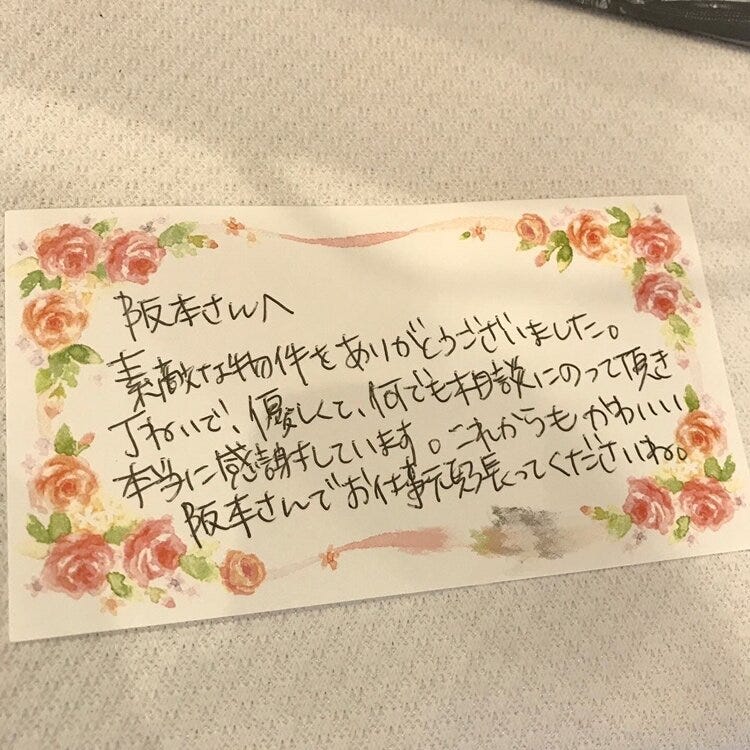 阪本さんへ
素敵な物件をありがとうございました。
丁ねいで、優しくて、何でも相談にのって頂き
本当に感謝しています。これからもかわいい
阪本さんでお仕事頑張ってくださいね。